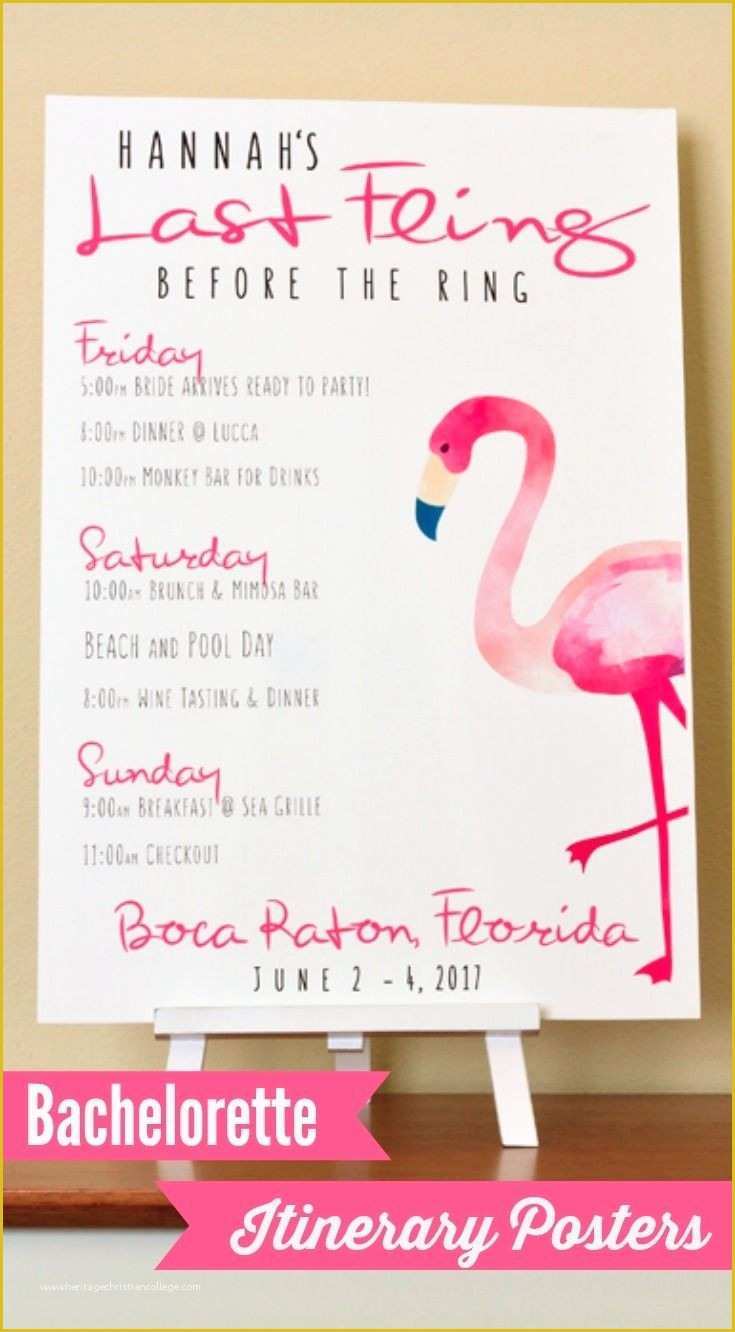 HANNAH'S
Last Fling
BEFORE THE RING
Friday
5:00PM BRIDE ARRIVES READY TO PARTY!
8:00PM DINNER @ LUCCA
10:00PM MONKEY BAR FOR DRINKS
Saturday
10:00AM BRUNCH & MIMOSA BAR
BEACH AND POOL DAY
8:00PM WINE TASTING & DINNER
Sunday
9:00AM BREAKFAST @ SEA GRILLE
11:00AM CHECKOUT
Boca Raton, Florida
JUNE 2 - 4, 2017
Bachelorette
Itinerary Posters
www.heritagechristiancollege.com